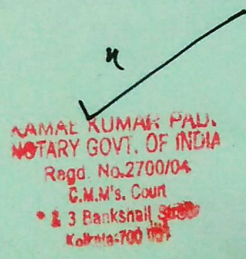 KAMAL KUMAR PAUL
NOTARY GOVT. OF INDIA
Regd. No.2700/04
C.M.M's. Court
2 & 3 Bankshall Street
Kolkata-700 001